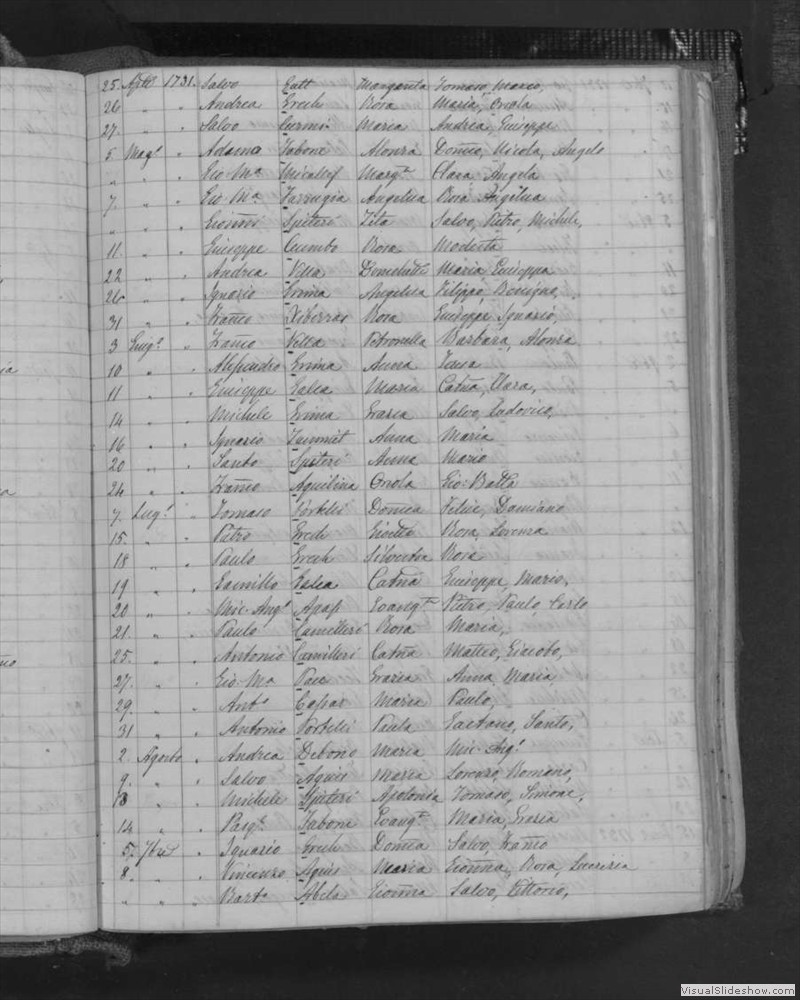 25 Aple 1731. Salvo Gatt Margarita Tomaso, Marco,
26 " " Andrea Grech Rosa Maria, Orsola
27 " " Salvo Curmi Maria Andrea, Giuseppe
5 Magº " Adama Tabone Alonza Domco, Nicola, Angelo
" " " Gio Mª Micallef Margta Clara Angela
7 " " Gio Mª Farrugia Angelica Rosa Angelica
" " " Spiteri Zita Salvo, Pietro, Michele,
11. " " Giuseppe Cumbo Rosa Modesta
22 " " Andrea Vella Benedetta Maria Giuseppa
26 " " Ignazio Grima Angelica Filippo,
31 " " Franco Xiberras Rosa Giuseppe Ignazio,
3 Giugº " Franco Vella Petronella Barbara, Alonza
10 " " Alessandro Grima Anna Teresa
11 " " Giuseppe Galea Maria Catna, Clara,
14 " " Michele Grima Grazia Salvo, Ludovico,
16 " " Ignazio Zammit Anna Maria
20 " " Santo Spiteri Anna Mario
24 " " Franco Aquilina Orsola Gio: Batta
7. Lugº " Tomaso Portelli Domca Felice, Damiano
15. " " Petro Grech Rosa, Lorenza
18 " " Paulo Grech Silvestra Rosa
19 " " Camillo Galea Catna Giuseppe, Mario,
20 " " Mic. Angº Agap Evangta Pietro, Paulo, Carlo
21. " " Paulo Camilleri Rosa Maria,
25. " " Antonio Camilleri Catna Matteo, Giacobo,
27. " " Gio Mª Pace Grazia Anna, Maria
29. " " Antº Caspar Maria Paulo,
31 " " Antonio Portelli Paula Gaetano, Santo,
2. Agosto " Andrea Debono Maria Mic-Angº
9. " " Salvo Agius Maria Lorenzo, Romano,
13 " " Michele Spiteri Apolonia Tomaso, Simone,
14 " " Pasqe Tabone Evangta Maria, Grazia
5. 7bre " Ignazio Grech Domca Salvo, Franco
8. " " Vincenzo Agius Maria Gioanna, Rosa, Lucrezia
" " " Barto Abela Gioanna Salvo, Vittorio,
VisualSlideshow.com